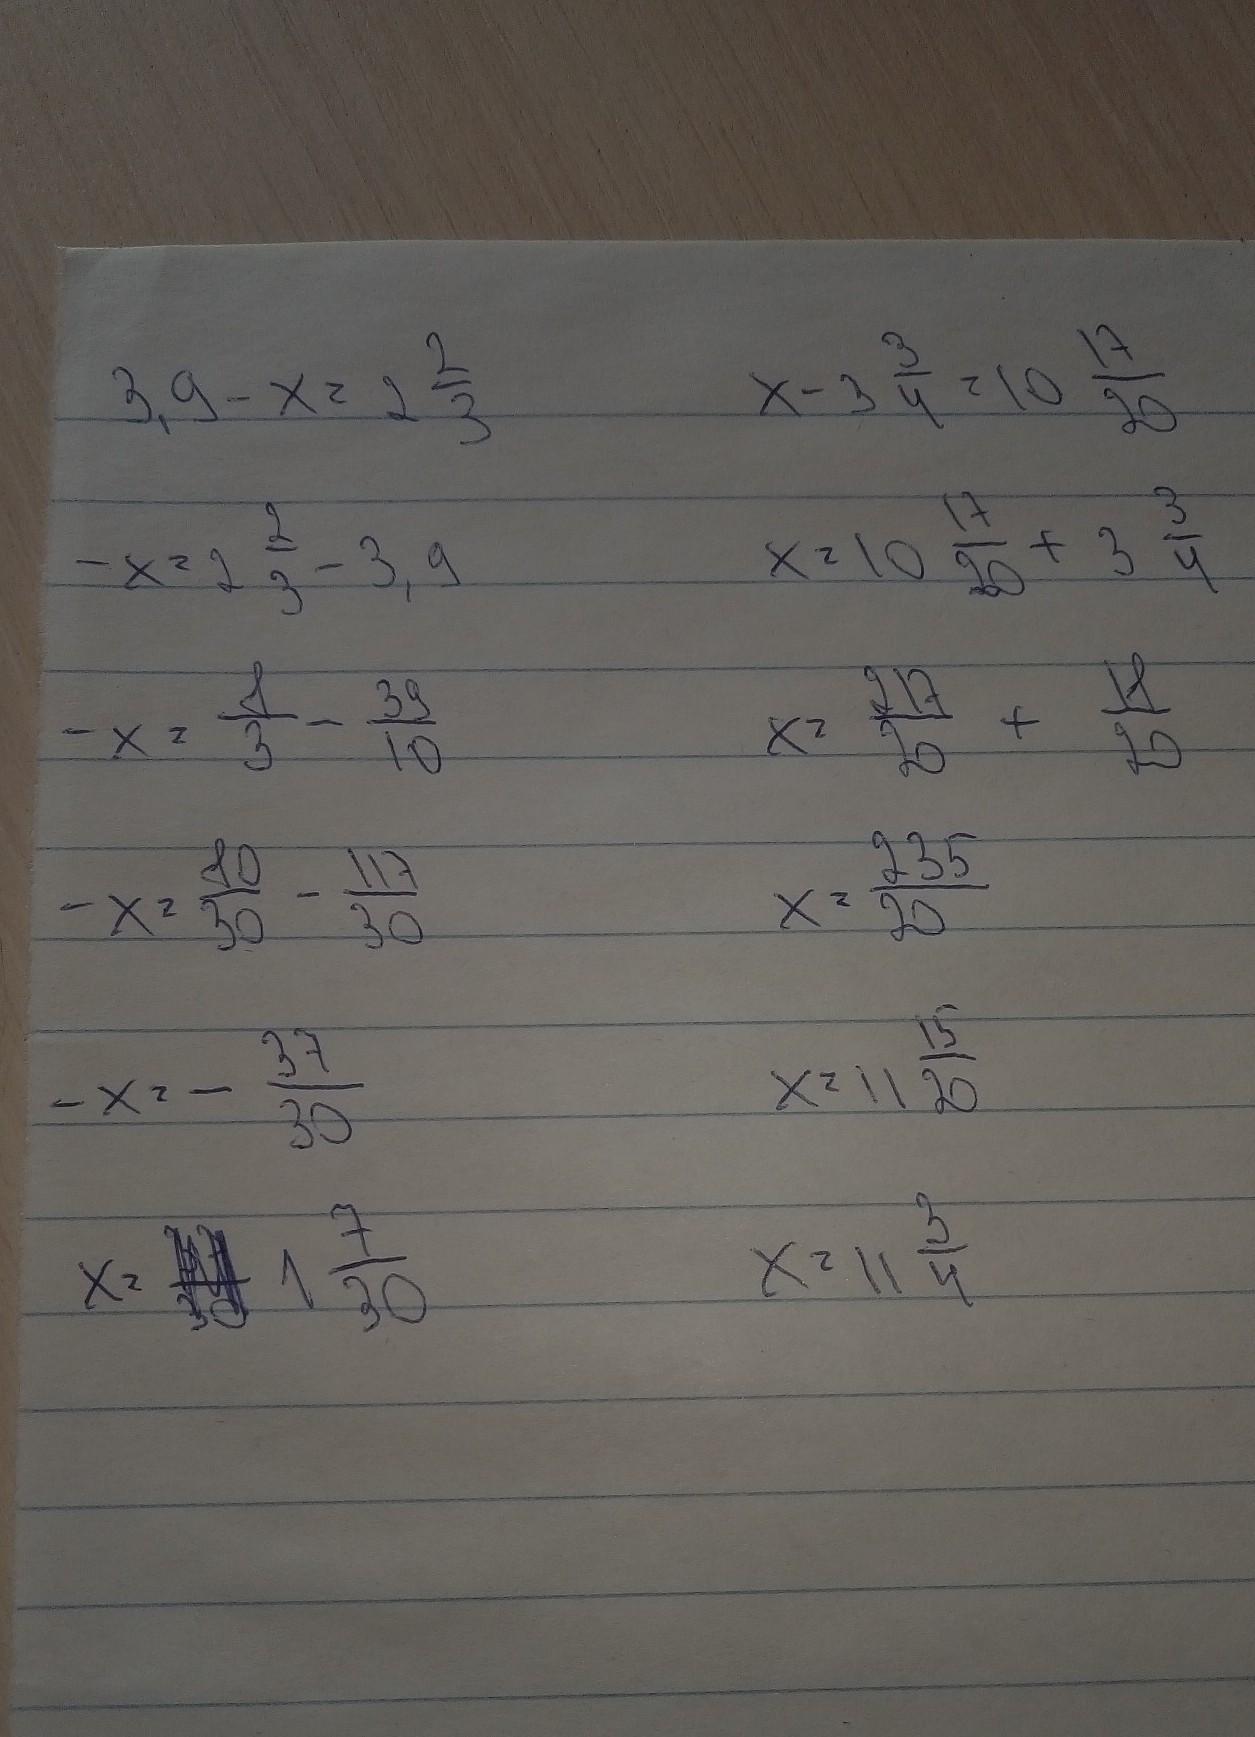 3,9 - x = 2 2/3
-x = 2 2/3 - 3,9
-x = 8/3 - 39/10
-x = 80/30 - 117/30
-x = - 37/30
x = 1 7/30
x - 3 3/4 = 10 17/20
x = 10 17/20 + 3 3/4
x = 217/20 + 18/20
x = 235/20
x = 11 15/20
x = 11 3/4